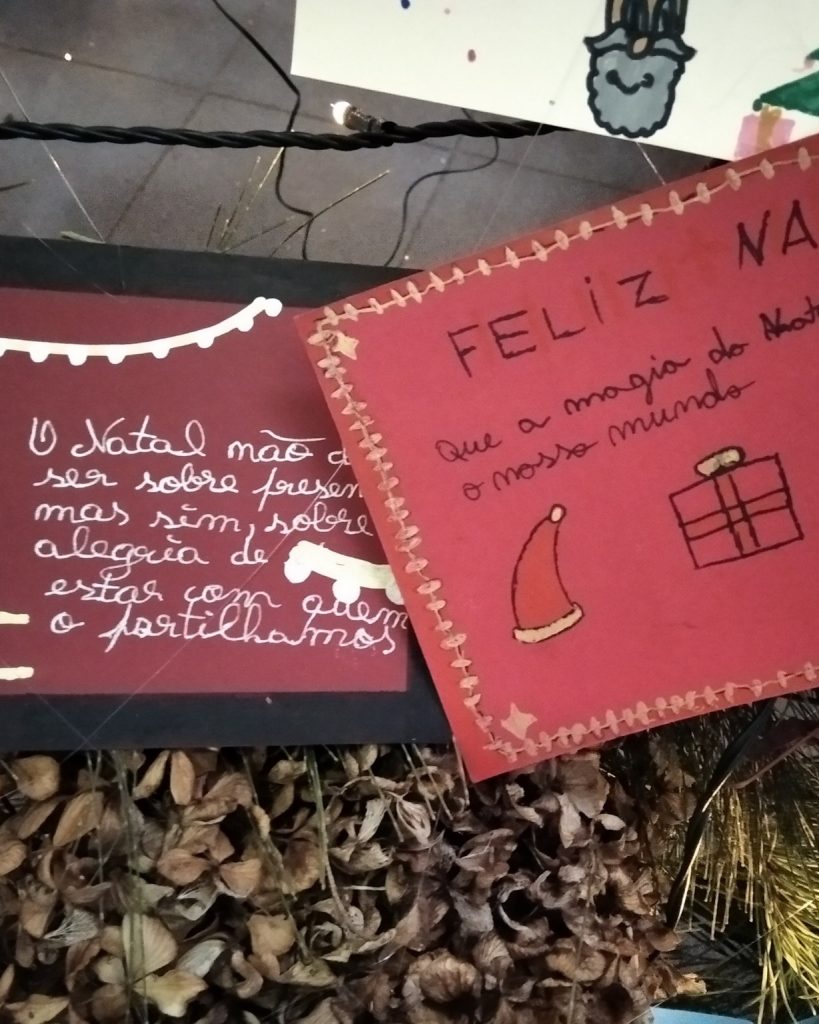 O Natal não
ser sobre presen
mas sim, sobre
alegria de
estar com quem
o partilhamos
FELIZ NA
Que a magia do Nat
o nosso mundo